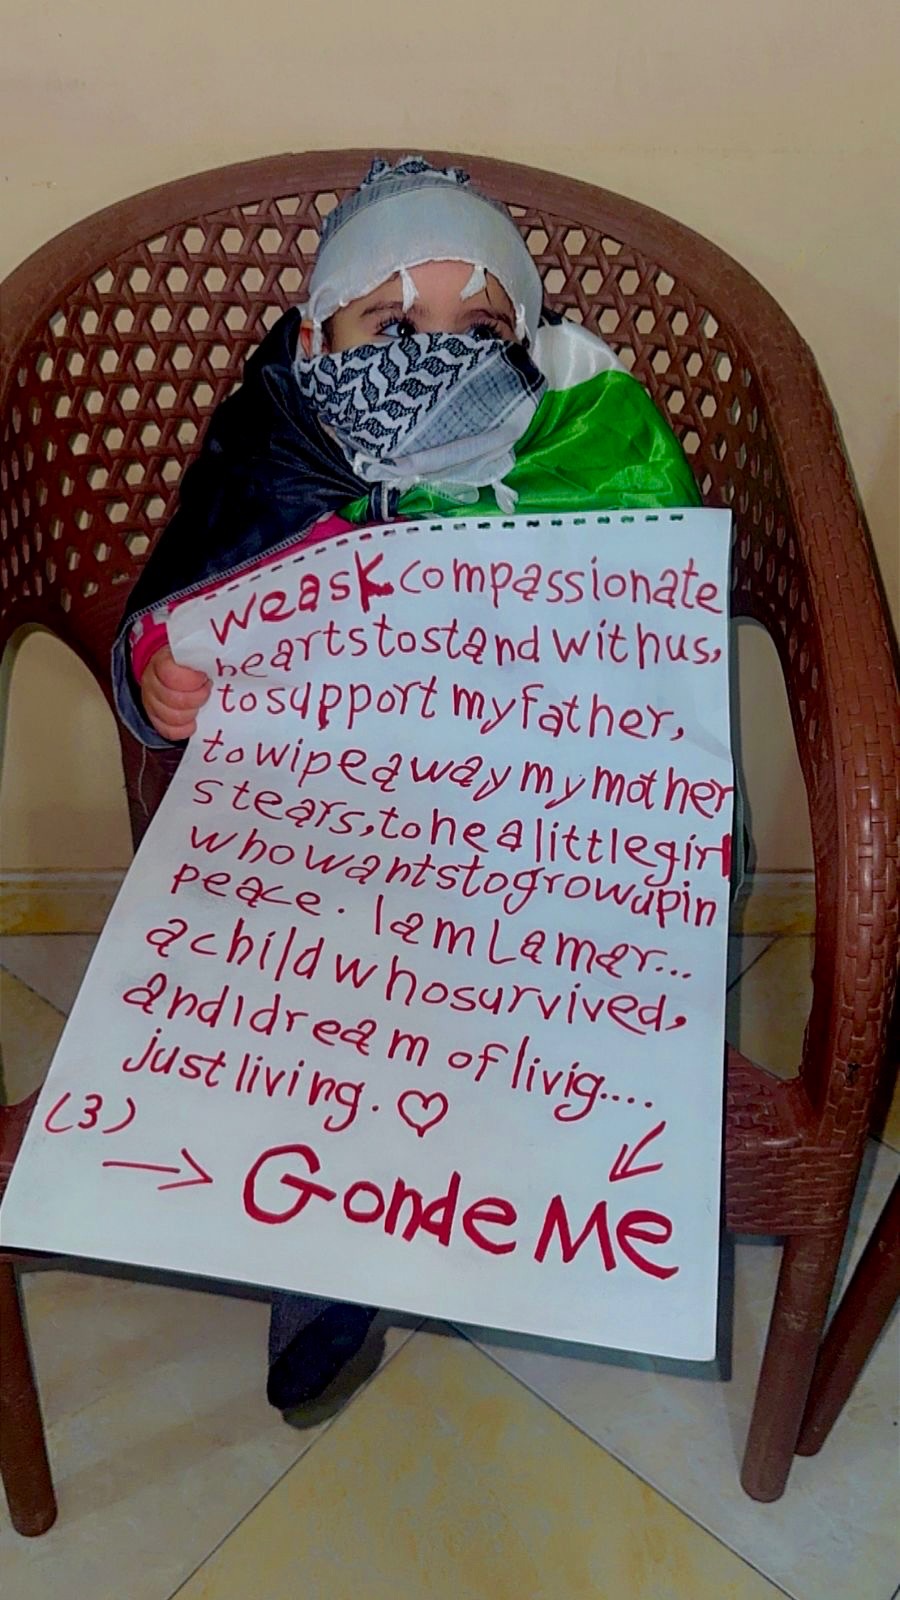 we ask compassionate
hearts to stand with us,
to support my father,
to wipe away my mother
s tears, to he a little girl
who wants to grow up in
peace. I am Lamar...
a child who survived,
and I dream of livig....
just living. ♡
(3)
→ Gonde Me